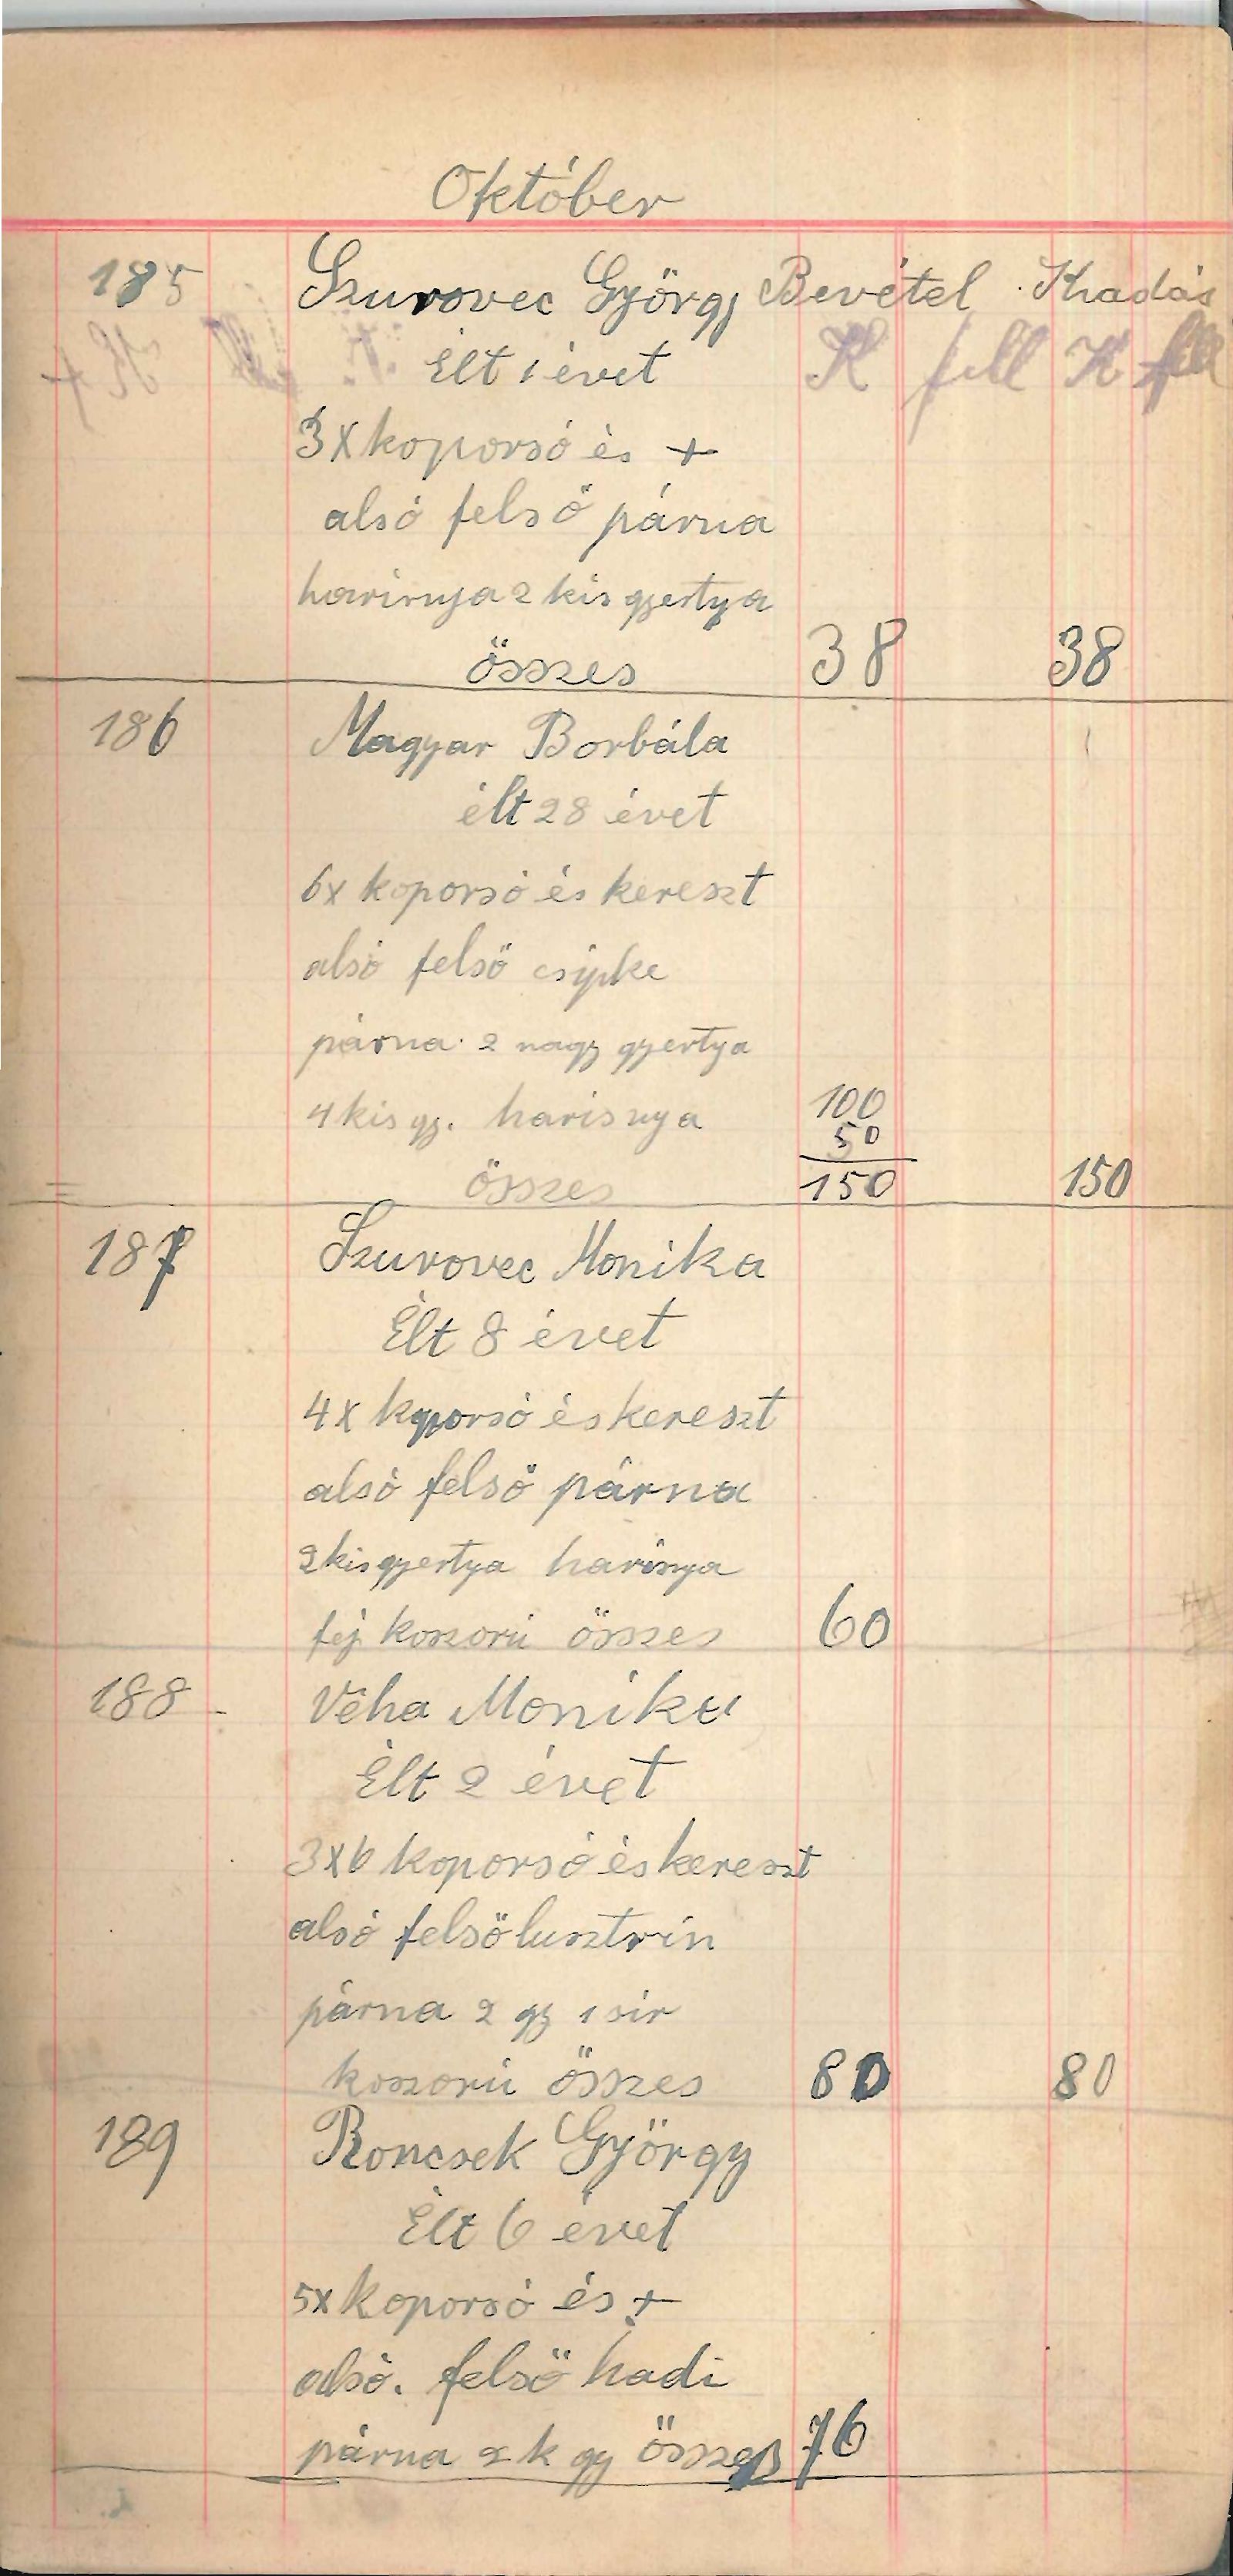 Október
185 Szurovec György Bevétel Kiadás
Élt 1 évet K fill K fill
3x koporsó és +
alsó felső párna
harisnya 2 kis gyertya
összes 38 38
186 Magyar Borbála
élt 28 évet
6x koporsó és kereszt
alsó felső csipke
párna 2 nagy gyertya
4 kis gy. harisnya 100
50
összes 150 150
187 Szurovec Monika
Élt 8 évet
4x koporsó és kereszt
alsó felső párna
2 kis gyertya harisnya
fej koszorú összes 60
188 Véha Monika
Élt 2 évet
3x6 koporsó és kereszt
alsó felső lusztrin
párna 2 gy 1 sir
koszorú összes 80 80
189 Roncsek György
Élt 6 évet
5x koporsó és +
alsó. felső hadi
párna 2 k gy összes 76